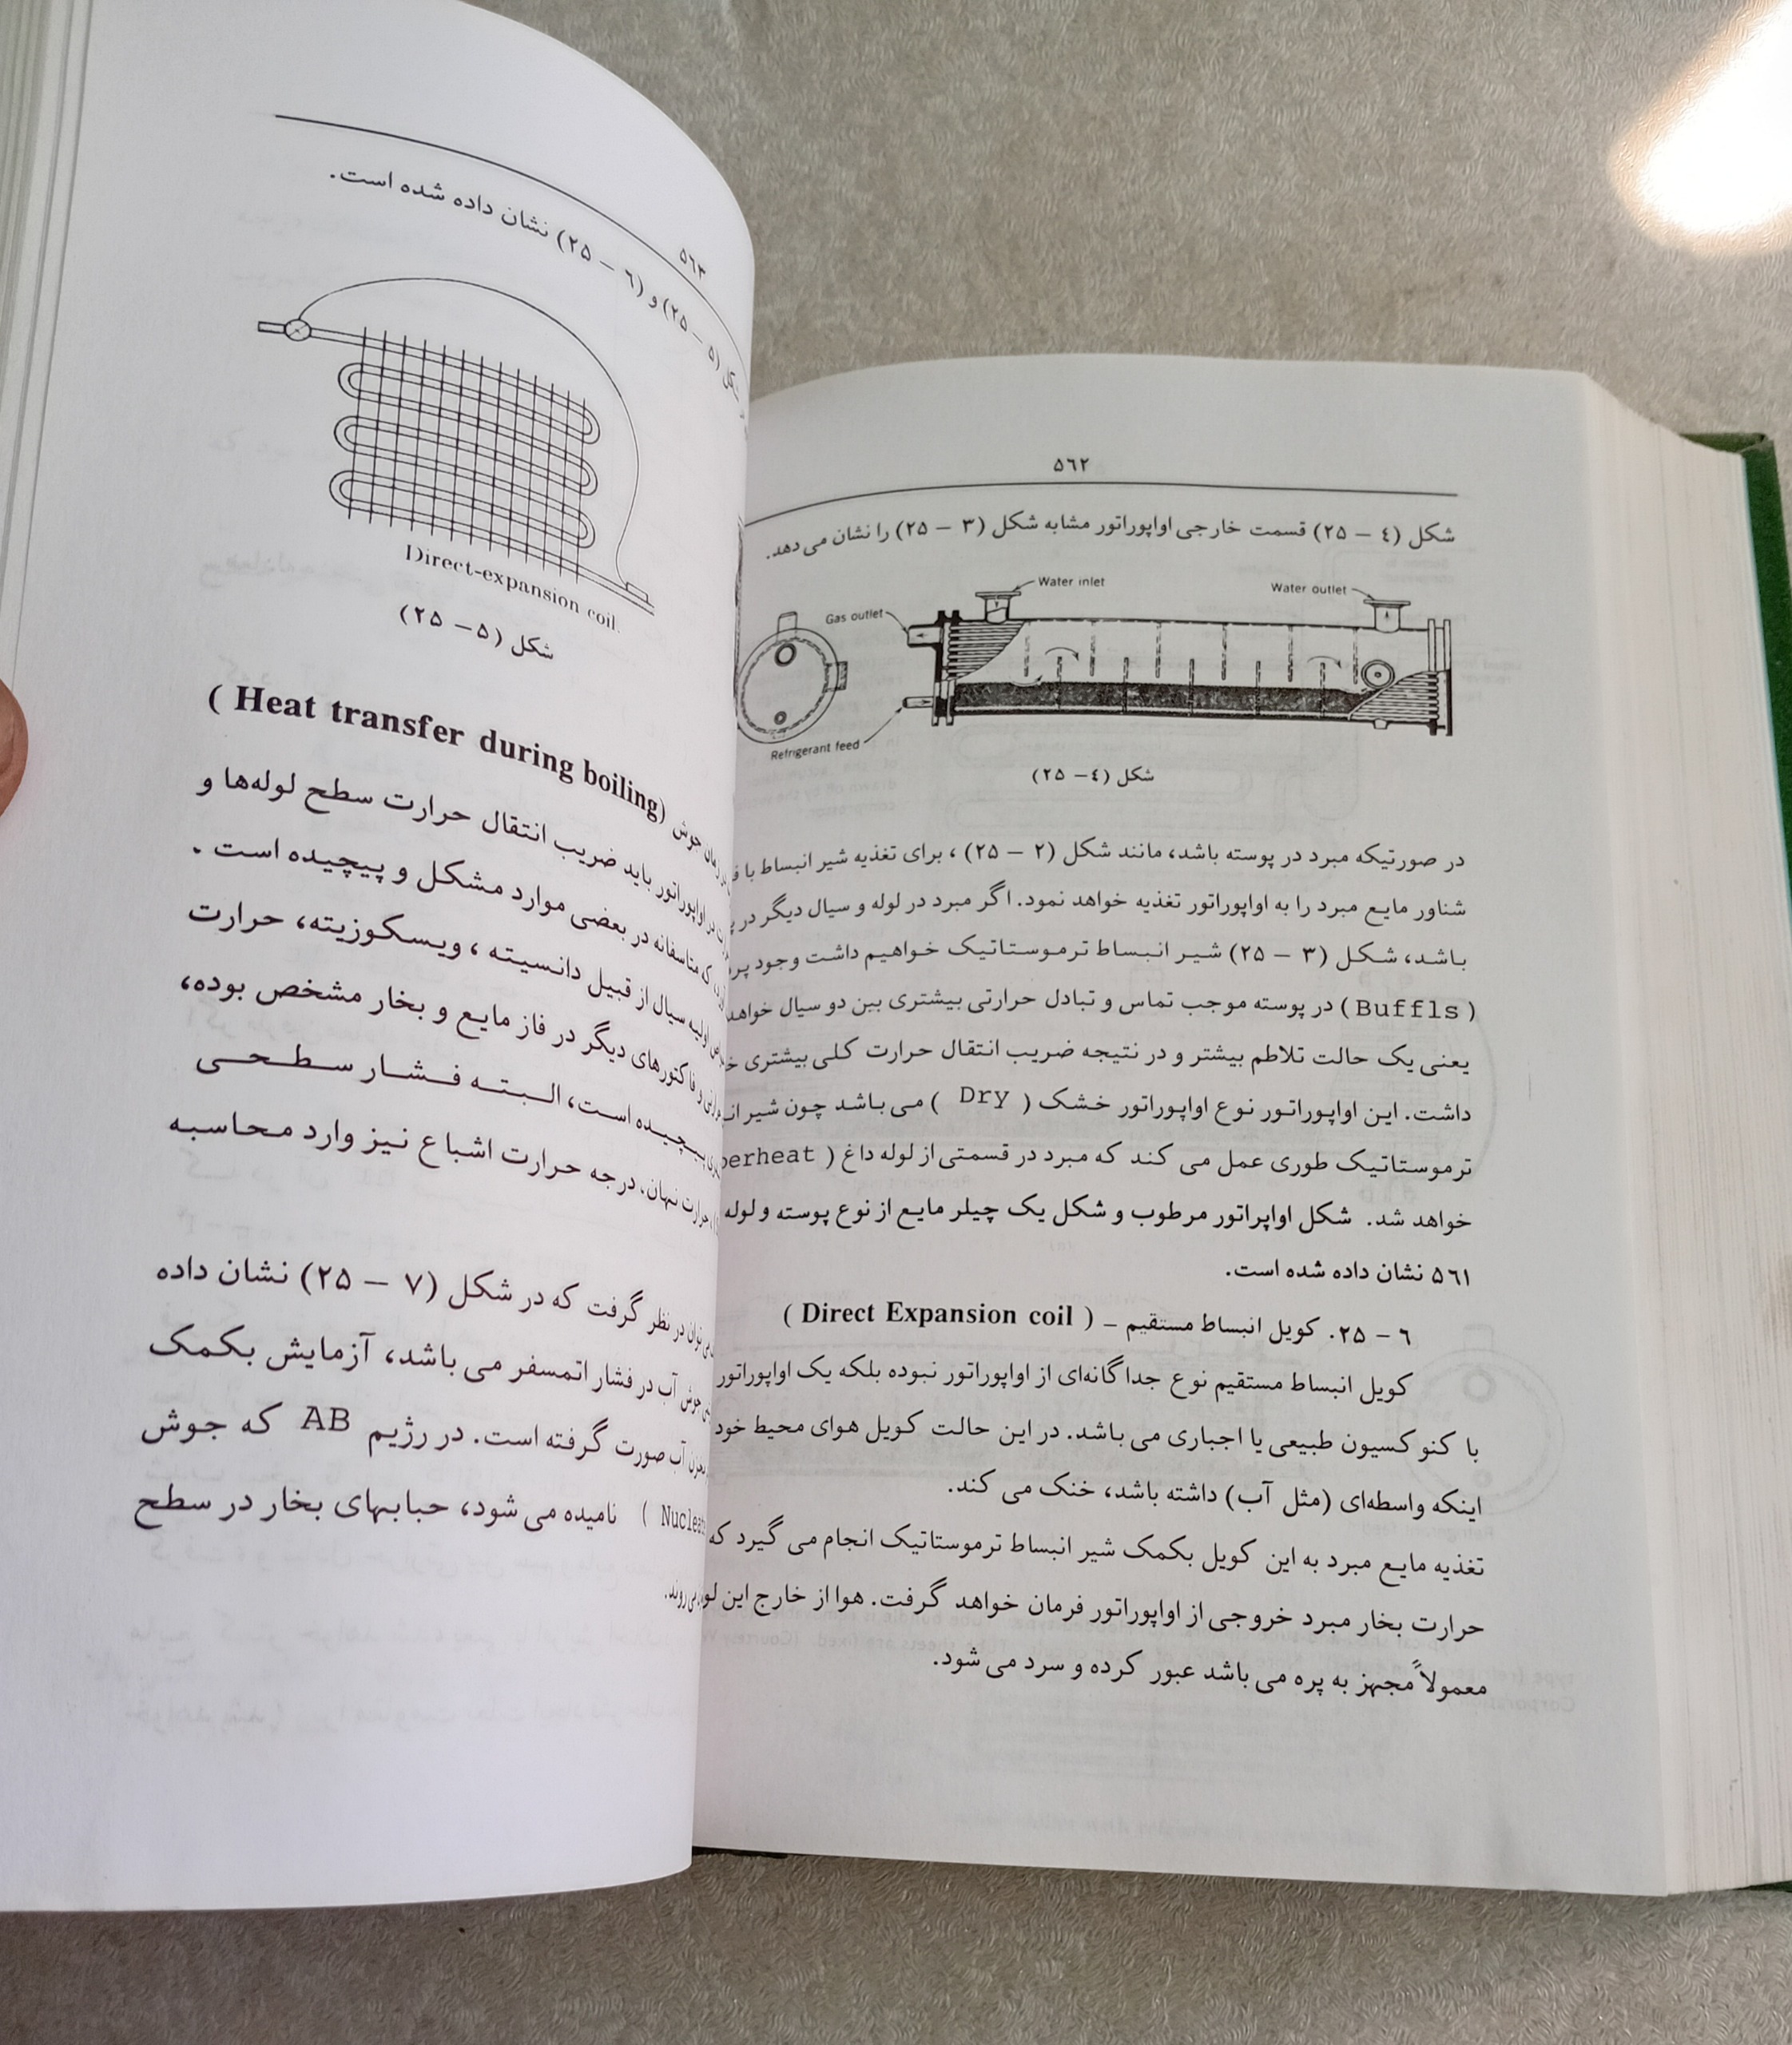 ۵٦۲
شکل (٤ – ۲۵) قسمت خارجی اواپوراتور مشابه شکل (۳ – ۲۵) را نشان می دهد.
Water inlet
Water outlet
Gas outlet
Refrigerant feed
شکل (٤– ۲۵)
در صورتیکه مبرد در پوسته باشد، مانند شکل (۲ – ۲۵) ، برای تغذیه شیر انبساط با
شناور مایع مبرد را به اواپوراتور تغذیه خواهد نمود. اگر مبرد در لوله و سیال دیگر در
باشد، شکل (۳ – ۲۵) شیر انبساط ترموستاتیک خواهیم داشت وجود
( Buffls ) در پوسته موجب تماس و تبادل حرارتی بیشتری بین دو سیال خواهد
یعنی یک حالت تلاطم بیشتر و در نتیجه ضریب انتقال حرارت کلی بیشتری
داشت. این اواپوراتور نوع اواپوراتور خشک ( Dry ) می باشد چون شیر
ترموستاتیک طوری عمل می کند که مبرد در قسمتی از لوله داغ ( perheat
خواهد شد. شکل اواپراتور مرطوب و شکل یک چیلر مایع از نوع پوسته و لوله
۵٦۱ نشان داده شده است.
٦ – ۲۵. کویل انبساط مستقیم – ( Direct Expansion coil )
کویل انبساط مستقیم نوع جداگانه‌ای از اواپوراتور نبوده بلکه یک اواپوراتور
با کنوکسیون طبیعی یا اجباری می باشد. در این حالت کویل هوای محیط خود
اینکه واسطه‌ای (مثل آب) داشته باشد، خنک می کند.
تغذیه مایع مبرد به این کویل بکمک شیر انبساط ترموستاتیک انجام می گیرد که
حرارت بخار مبرد خروجی از اواپوراتور فرمان خواهد گرفت. هوا از خارج این
معمولاً مجهز به پره می باشد عبور کرده و سرد می شود.
۵٦۳
(۵ – ۲۵) و (٦ – ۲۵) نشان داده شده است.
Direct-expansion coil.
شکل (۵– ۲۵)
جوش (Heat transfer during boiling )
در اواپوراتور باید ضریب انتقال حرارت سطح لوله‌ها و
که متاسفانه در بعضی موارد مشکل و پیچیده است .
اولیه سیال از قبیل دانسیته ، ویسکوزیته، حرارت
و فاکتورهای دیگر در فاز مایع و بخار مشخص بوده،
پیچیده است، البته فشار سطحی
حرارت نهان، درجه حرارت اشباع نیز وارد محاسبه
می توان در نظر گرفت که در شکل (۷ – ۲۵) نشان داده
جوش آب در فشار اتمسفر می باشد، آزمایش بکمک
آب صورت گرفته است. در رژیم AB که جوش
( Nucleat نامیده می شود، حبابهای بخار در سطح
می روند.